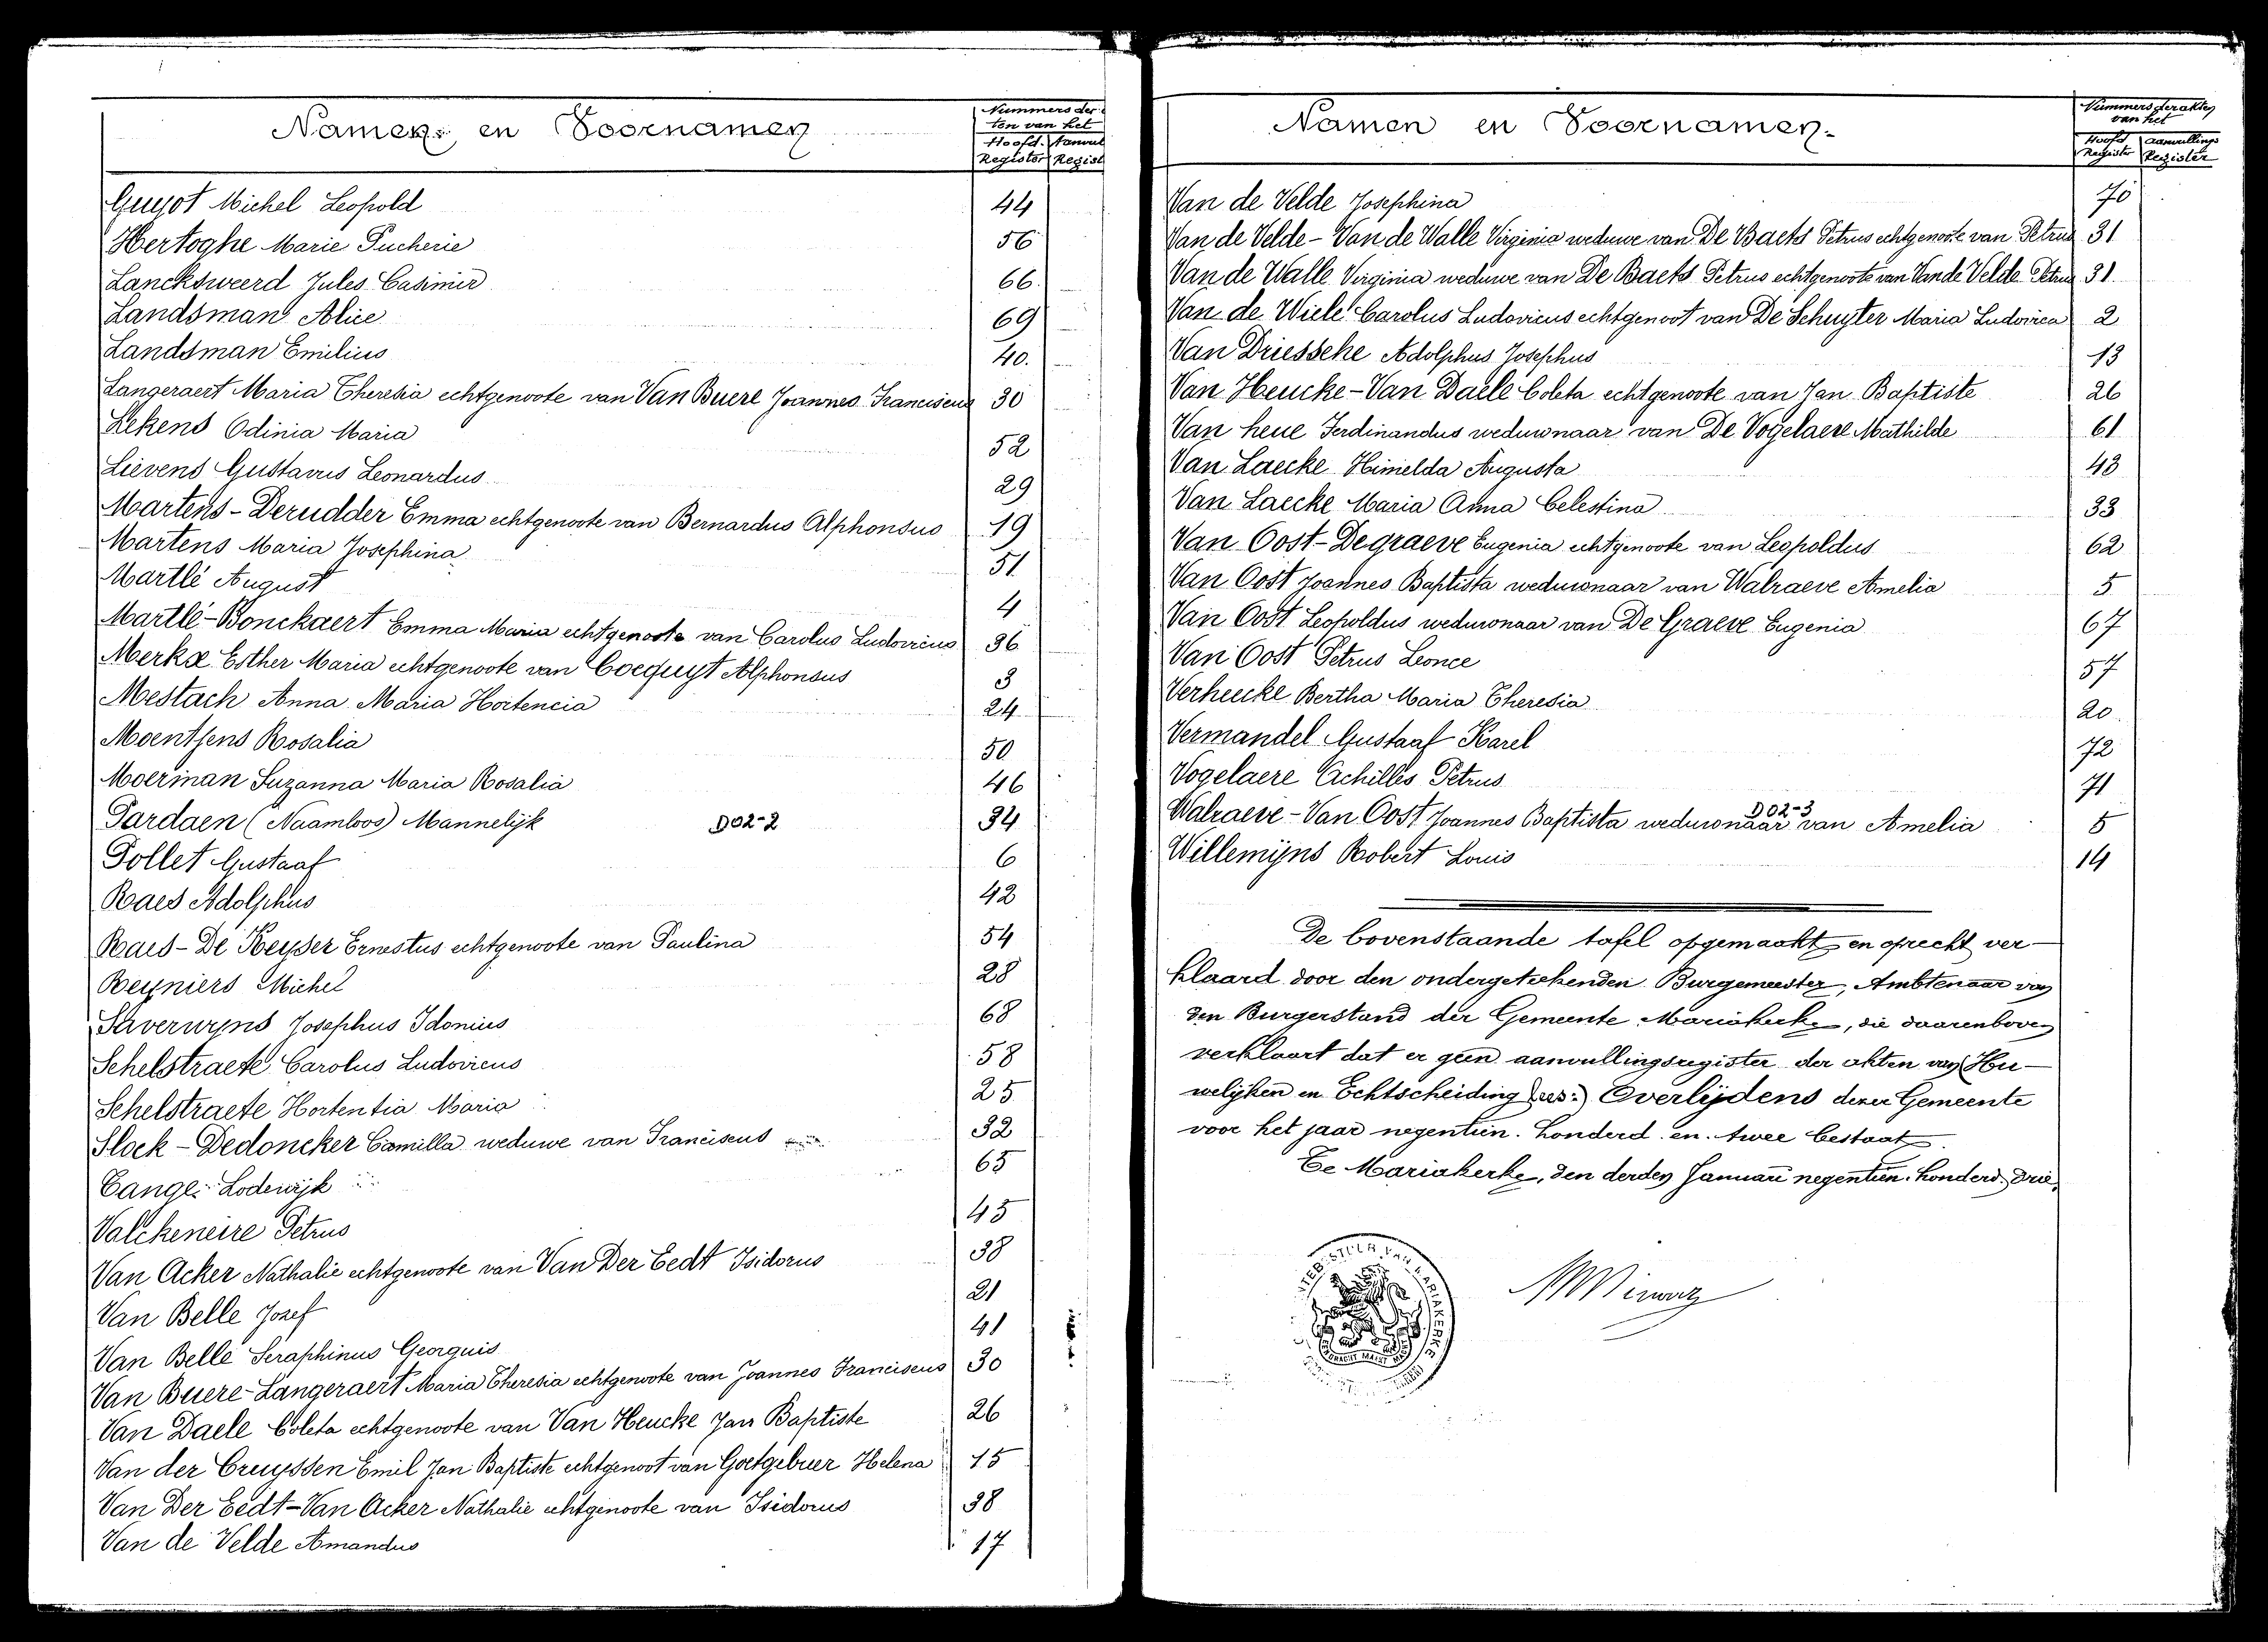 Namen en Voornamen
Nummers der
ten van het
Hoofd. Aanvul
Register Regist
Guyot Michel Leopold 44
Hertoghe Marie Pucherie 56
Lancksweerd Jules Casimir 66.
Landsman Alice 69
Landsman Emilius 40.
Langeraert Maria Theresia echtgenoote van Van Buere Joannes Franciscus 30
Lekens Odinia Maria 52
Lievens Gustavus Leonardus 29
Martens-Derudder Emma echtgenoote van Bernardus Alphonsus 19
Martens Maria Josephina 51
Martlé August 4
Martlé-Bonckaert Emma Maria echtgenoote van Carolus Ludovicus 36
Merkx Esther Maria echtgenoote van Coecquyt Alphonsus 3
Mestach Anna Maria Hortencia 24
Moentjens Rosalia 50
Moerman Suzanna Maria Rosalia 46
Pardaen (Naamloos) Mannelijk D02-2 34
Pollet Gustaaf 6
Raes Adolphus 42
Raes-De Keyser Ernestus echtgenoote van Paulina 54
Reyniers Michel 28
Saverwyns Josephus Idonius 68
Schelstraete Carolus Ludovicus 58
Schelstraete Hortentia Maria 25
Slock-Dedoncker Camilla weduwe van Franciscus 32
Tange Lodewijk 65
Valckeneire Petrus 45
Van Acker Nathalie echtgenoote van Van Der Eedt Isidorus 38
Van Belle Jozef 21
Van Belle Seraphinus Georguis 41
Van Buere-Langeraert Maria Theresia echtgenoote van Joannes Franciscus 30
Van Daele Coleta echtgenoote van Van Heucke Jan Baptiste 26
Van der Cruyssen Emil Jan Baptiste echtgenoot van Goetgebuer Helena 15
Van Der Eedt-Van Acker Nathalie echtgenoote van Isidorus 38
Van de Velde Amandus 17
Namen en Voornamen
Nummers der akten
van het
Hoofd aanvullings
Register Register
Van de Velde Josephina 70
Van de Velde-Van de Walle Virginia weduwe van De Baets Petrus echtgenoote van Petrus 31
Van de Walle Virginia weduwe van De Baets Petrus echtgenoote van Van de Velde Petrus 31.
Van de Wiele Carolus Ludovicus echtgenoot van De Schuyter Maria Ludovica 2
Van Driessche Adolphus Josephus 13
Van Heucke-Van Daele Coleta echtgenoote van Jan Baptiste 26
Van heue Ferdinandus weduwnaar van De Vogelaere Mathilde 61
Van Laecke Himelda Augusta 43
Van Laecke Maria Anna Celestina 33
Van Oost-Degraeve Eugenia echtgenoote van Leopoldus 62
Van Oost Joannes Baptista weduwnaar van Walraeve Amelia 5
Van Oost Leopoldus weduwnaar van De Graeve Eugenia 67
Van Oost Petrus Leonce 57
Verheecke Bertha Maria Theresia 20
Vermandel Gustaaf Karel 72
Vogelaere Achilles Petrus 71
D02-3
Walraeve-Van Oost Joannes Baptista weduwnaar van Amelia 5
Willemijns Robert Louis 14
De bovenstaande tafel opgemaakt en oprecht ver-
klaard door den ondergeteekenden Burgemeester, Ambtenaar van
den Burgerstand der Gemeente Mariakerke, die daarenboven
verklaart dat er geen aanvullingsregister der akten van Hu-
welijken en Echtscheiding Overlijdens dezer Gemeente
voor het jaar negentien. honderd. en. twee bestaat.
Te Mariakerke, den derden Januari negentien. honderd. drie.